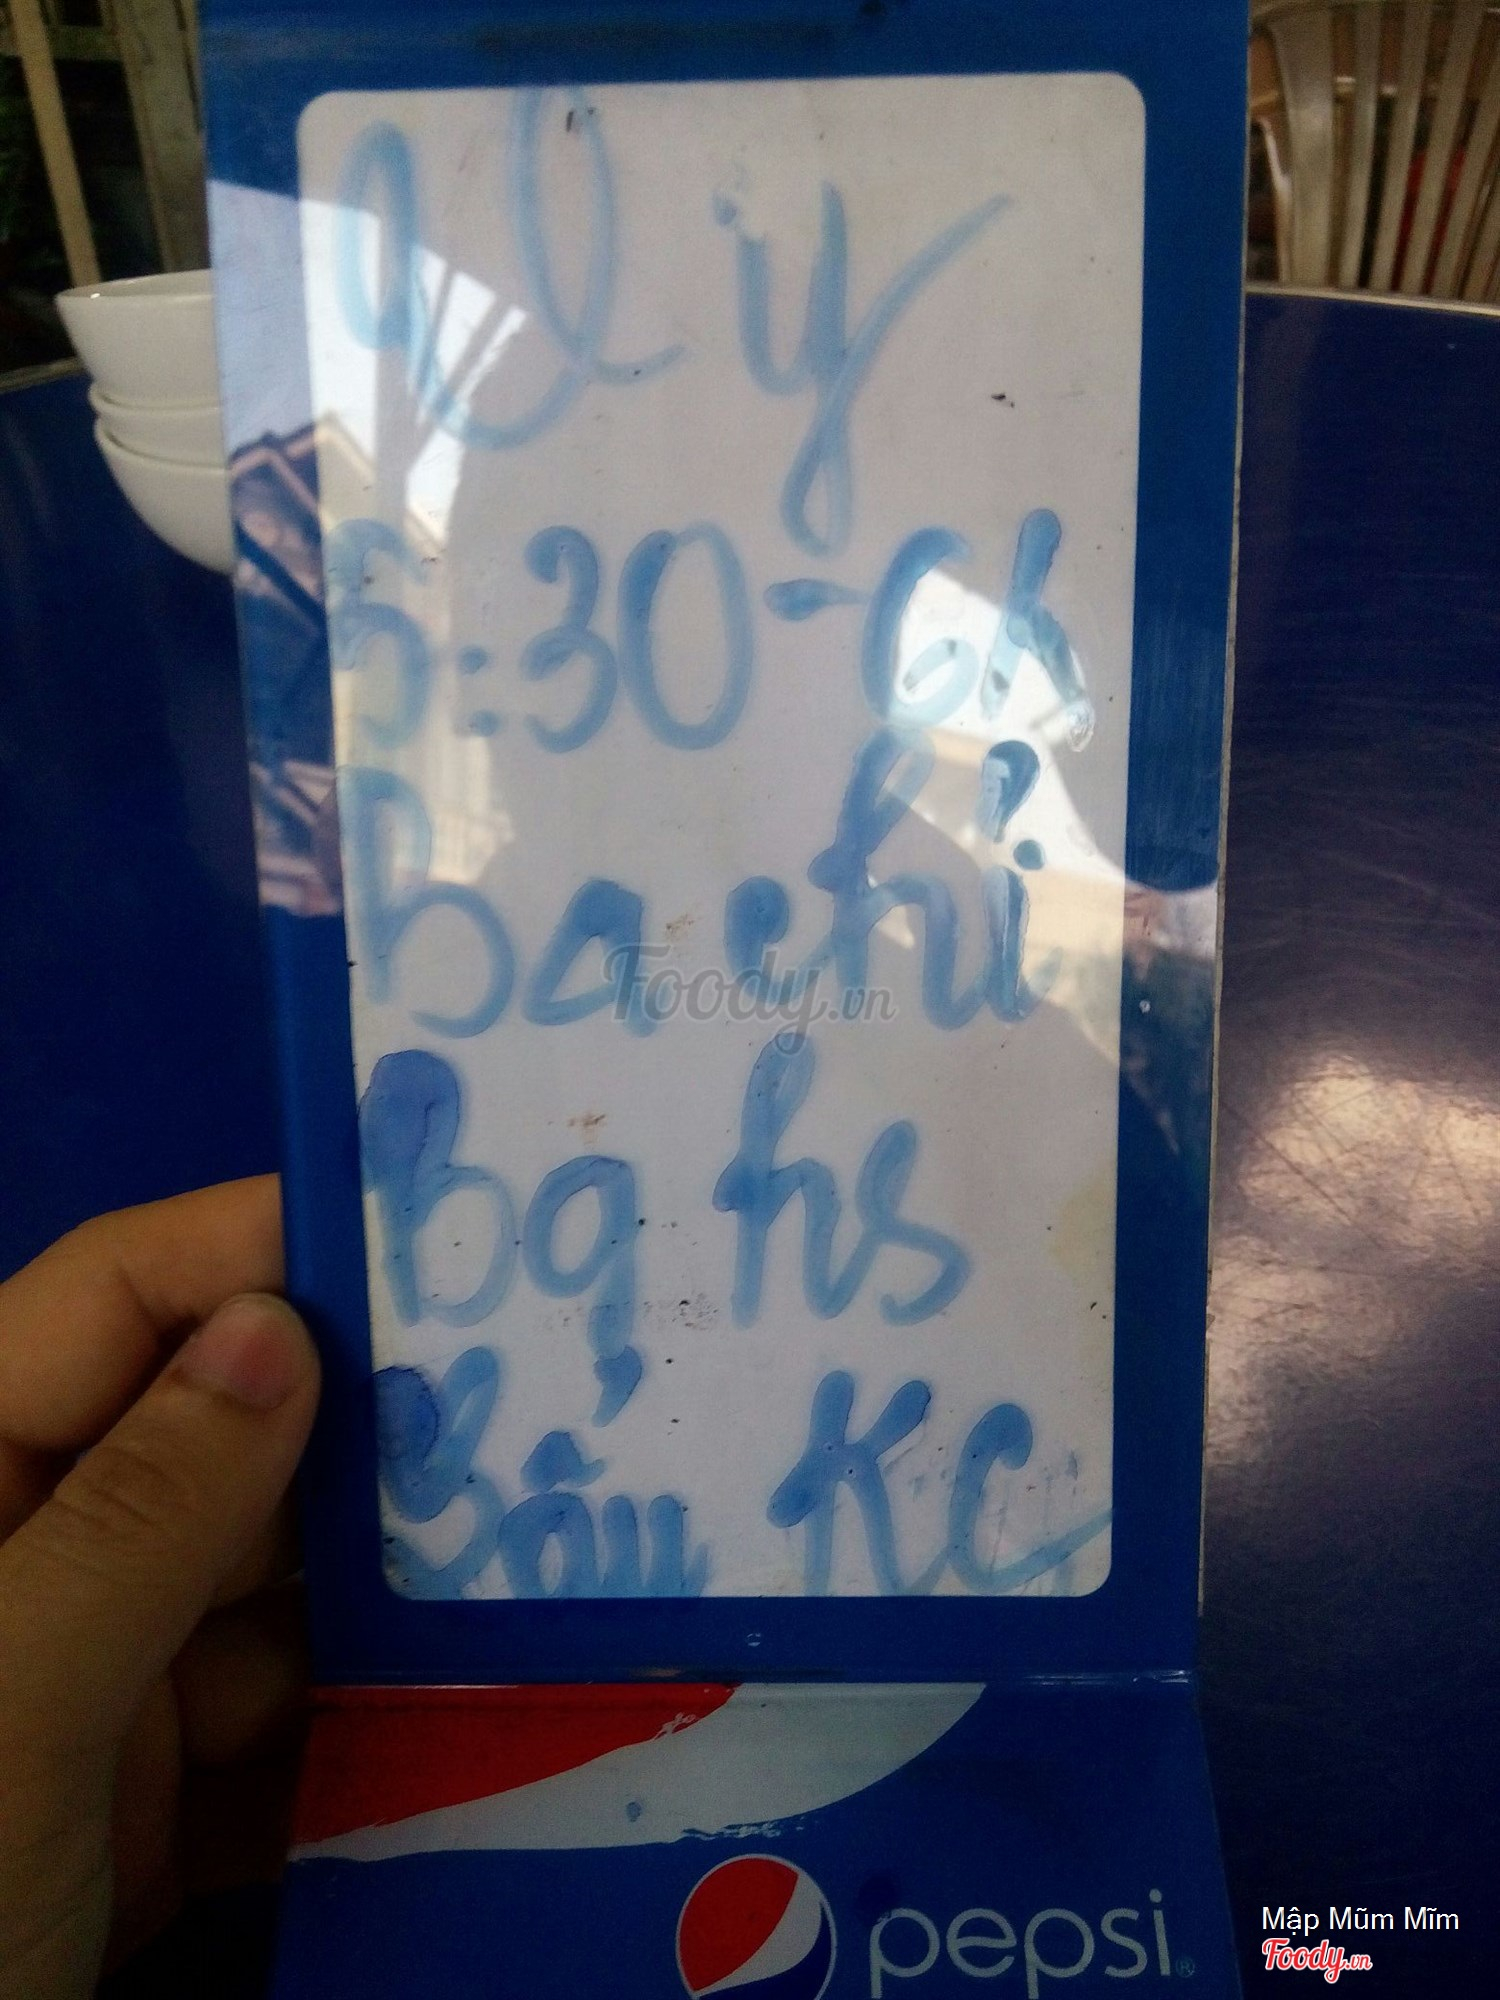 Uly
5:30-6h
Ba chỉ
Foody.vn
Bạ hs
Bầu KC
pepsi
Mập Mũm Mĩm
Foody.vn